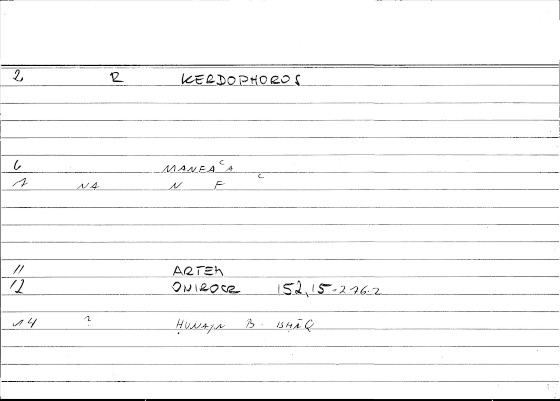 2 R KERDOPHOROS
6 MANFAʿA
1 NA N F ʿ
11 ARTEM
12 ONIROCR 152,15-216.2
14 ? ḤUNAYN B. ISḤĀQ